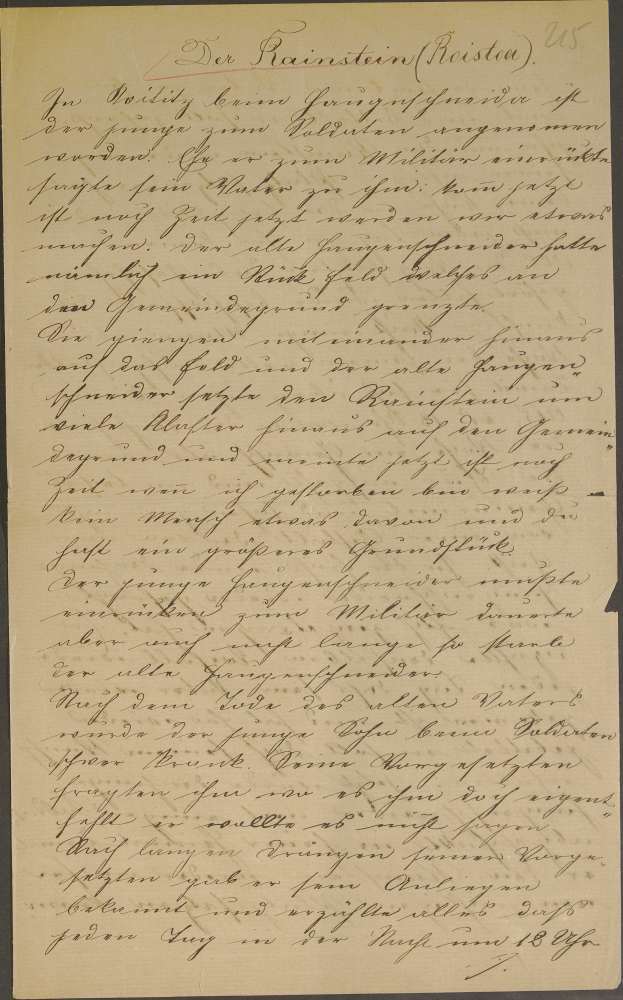 215
Der Rainstein (Roistoa).
In Koititz beim Haugnschneida ist
der junge zum Soldaten angenomen
worden. Ehe er zum Militär einrückte
sagte sein Vater zu ihm: kom̄ jetzt
ist noch Zeit jetzt werden wir etwas
machen. Der alte Haugenschneider hatte
nämlich ein Stück Feld welches an
den Gemeindegrund grenzte.
Sie giengen miteinander hinaus
auf das Feld und der alte Haugen„
schneider setzte den Rainstein um
viele Klafter hinaus auf den Gemein„
degrund und meinte jetzt ist noch
Zeit wen̄ ich gestorben bin weiß
kein Mensch etwas davon und du
hast ein größeres Grundstück.
Der junge Haugenschneider mußte
einrücken zum Militär dauerte
aber auch nicht lange so starb
der alte Haugenschneider.
Nach dem Tode des alten Vaters
wurde der junge Sohn beim Soldaten
schwer krank. Seine Vorgesetzten
fragten ihn wo es ihm doch eigent„
fehlt er wollte es nicht sagen
Nach langen Drängen seiner Vorge-
setzten gab er sein Anliegen
bekannt und erzählte alles dass
jeden Tag in der Nacht um 12 Uhr
./.